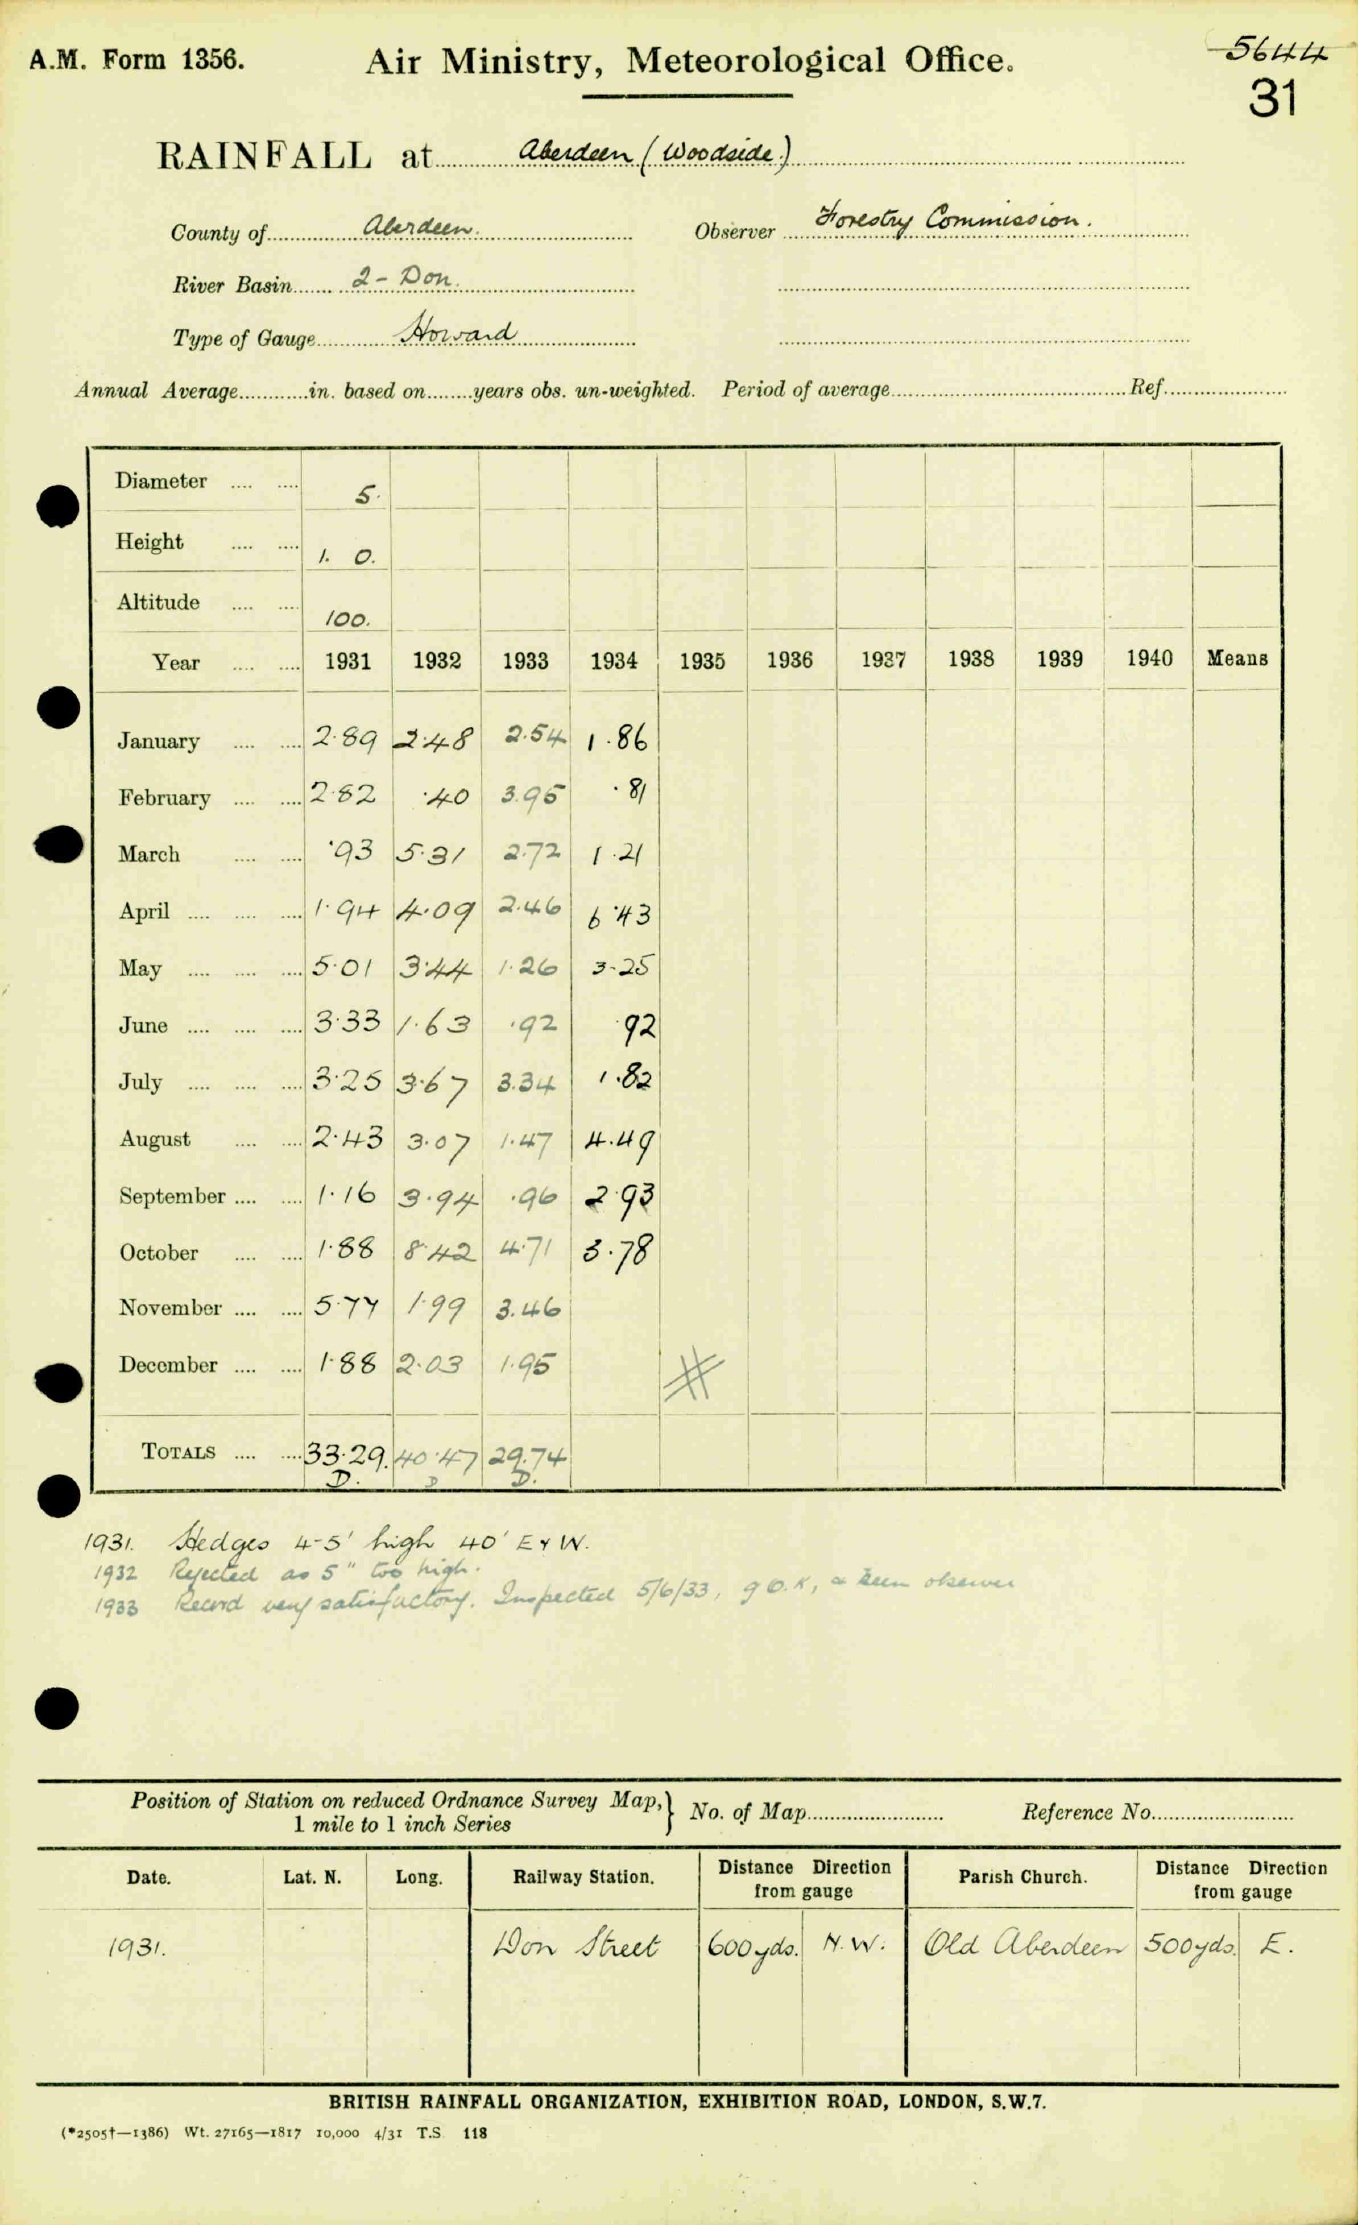 A.M. Form 1356.
Air Ministry, Meteorological Office.
5644
31
RAINFALL at Aberdeen (Woodside.)
County of Aberdeen.
Observer Forestry Commission.
River Basin 2 - Don.
Type of Gauge Howard
Annual Average in. based on years obs. un-weighted. Period of average Ref.
Diameter 5.
Height 1. 0.
Altitude 100.
Year 1931 1932 1933 1934 1935 1936 1937 1938 1939 1940 Means
January 2·89 2·48 2.54 1·86
February 2·82 ·40 3.95 ·81
March ·93 5·31 2.72 1·21
April 1·94 4·09 2.46 6·43
May 5·01 3·44 1·26 3·25
June 3·33 1·63 ·92 ·92
July 3·25 3·67 3.34 1·82
August 2·43 3·07 1·47 4·49
September 1·16 3·94 ·96 2·93
October 1·88 8·42 4·71 3·78
November 5·77 1·99 3.46
December 1·88 2·03 1·95
TOTALS 33·29. 40·47 29.74
D. D D.
1931. Hedges 4-5' high 40' E & W.
1932 Rejected as 5" too high.
1933 Record very satisfactory. Inspected 5/6/33, g O.K, a keen observer
Position of Station on reduced Ordnance Survey Map,
1 mile to 1 inch Series
No. of Map
Reference No.
Date. Lat. N. Long. Railway Station. Distance Direction from gauge Parish Church. Distance Direction from gauge
1931. Don Street 600yds. N.W. Old Aberdeen 500yds. E.
BRITISH RAINFALL ORGANIZATION, EXHIBITION ROAD, LONDON, S.W.7.
(*2505†—1386) Wt. 27165—1817 10,000 4/31 T.S. 118